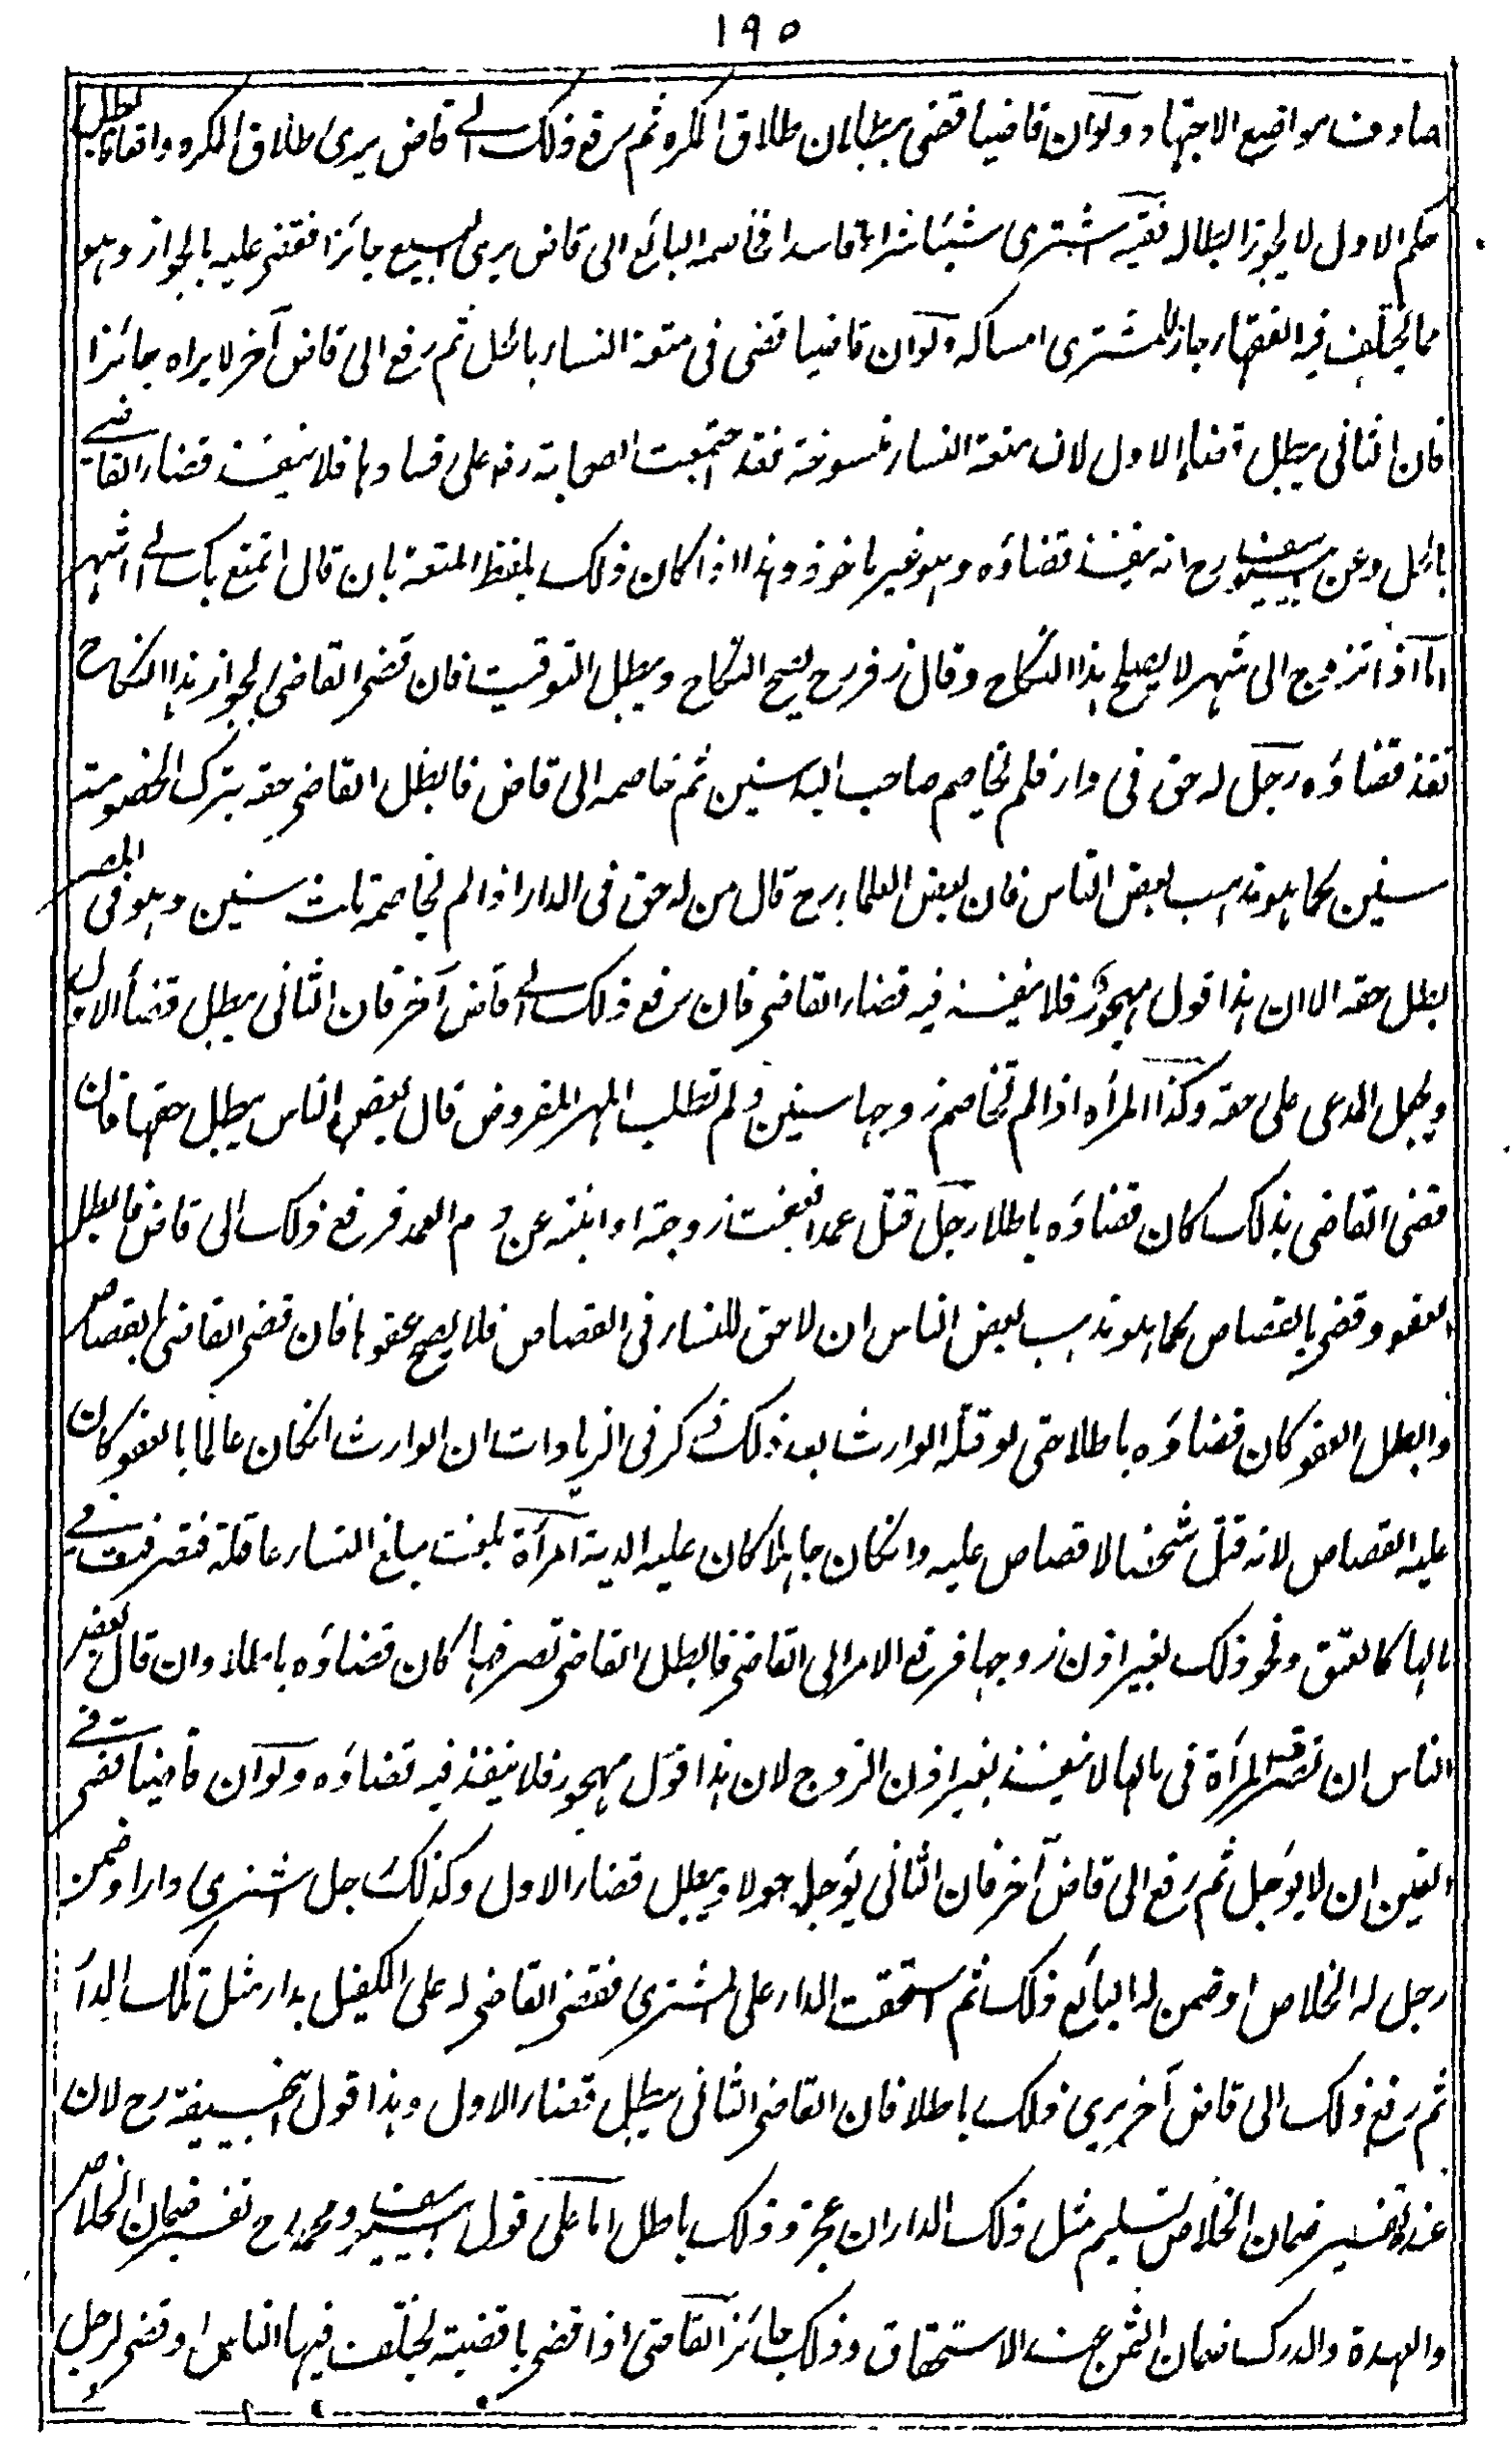 ١٩٥
صادف مواضع الاجتهاد ولو ان قاضيا قضى ببطلان طلاق المكره ثم رفع ذلك الى قاض يرى طلاق المكره واقعا فابطل
حكم الاول لا يجوز ابطاله فقيه اشترى شيئا شراء فاسدا فخاصمه البائع الى قاض يرى البيع جائزا فقضى عليه بالجواز وهو
مما يختلف فيه الفقهاء جاز للمشترى امساكه ولو ان قاضيا قضى فى متعة النساء بالحل ثم رفع الى قاض آخر لا يراه جائزا
فان الثانى يبطل قضاء الاول لان متعة النساء منسوخة فقد اجتمعت الصحابة رض على فسادها فلا ينفذ قضاء القاضى
بالحل وعن ابى يوسف رح انه ينفذ قضاؤه وهو غير ماخوذ وهذا اذا كان ذلك بلفظ المتعة بان قال اتمتع بك الى شهر
اما اذا تزوج الى شهر لا يصلح هذا النكاح وقال زفر رح يصح النكاح ويبطل التوقيت فان قضى القاضى بجواز هذا النكاح
نفذ قضاؤه رجل له حق فى دار فلم يخاصم صاحب اليد سنين ثم خاصمه الى قاض فابطل القاضى حقه بترك الخصومة
سنين كما هو مذهب بعض الناس فان بعض العلماء رح قال من له حق فى الدار اذا لم يخاصم ثلث سنين وهو فى المصر
بطل حقه الا ان هذا قول مهجور فلا ينفذ فيه قضاء القاضى فان رفع ذلك الى قاض آخر فان الثانى يبطل قضاء الاول
ويجعل المدعى على حقه وكذا المرأه اذا لم تخاصم زوجها سنين ولم تطلب المهر المفروض قال بعض الناس يبطل حقها فان
قضى القاضى بذلك كان قضاؤه باطلا رجل قتل عمدا فعفت زوجته او ابنته عن دم العمد فرفع ذلك الى قاض فابطل
العفو وقضى بالقصاص كما هو مذهب بعض الناس ان لا حق للنساء فى القصاص فلا يصح عفوها فان قضى القاضى بالقصاص
وابطل العفو كان قضاؤه باطلا حتى لو قتله الوارث بعد ذلك ذكر فى الزيادات ان الوارث انكان عالما بالعفو كان
عليه القصاص لانه قتل شخصا لا قصاص عليه وانكان جاهلا كان عليه الدية امرأة بلغت مبلغ النساء عاقلة فتصرفت فى
مالها كالعتق ونحو ذلك بغير اذن زوجها فرفع الامر الى القاضى فابطل القاضى تصرفها كان قضاؤه باطلا وان قال بعض
الناس ان تصرف المرأة فى مالها لا ينفذ بغير اذن الزوج لان هذا قول مهجور فلا ينفذ فيه قضاؤه ولو ان قاضيا قضى فى
العنين ان لا يؤجل ثم رفع الى قاض آخر فان الثانى يؤجله حولا ويبطل قضاء الاول وكذلك رجل اشترى دارا وضمن
رجل له الخلاص او ضمن له البائع ذلك ثم استحقت الدار على المشترى فقضى القاضى له على الكفيل بدار مثل تلك الدار
ثم رفع ذلك الى قاض آخر يرى ذلك باطلا فان القاضى الثانى يبطل قضاء الاول وهذا قول ابى حنيفة رح لان
عنده تفسير ضمان الخلاص تسليم مثل ذلك الدار ان عجز وذلك باطل اما على قول ابى يوسف ومحمد رح تفسير ضمان الخلاص
والعهدة والدرك ضمان الثمن عند الاستحقاق وذلك جائز القاضى اذا قضى باقضية يختلف فيها الناس او قضى لرجل